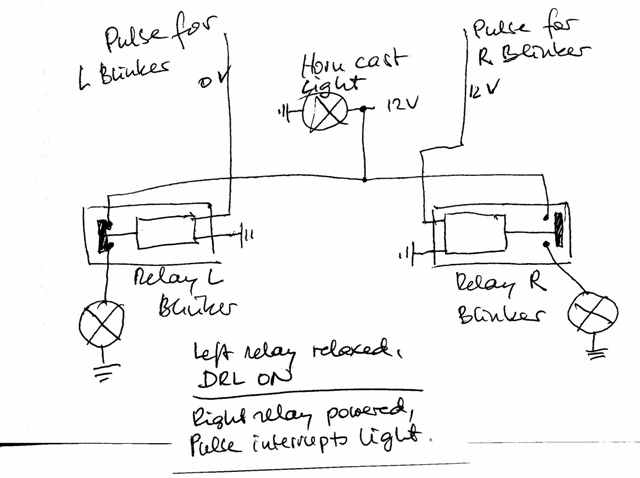 Pulse for
L Blinker
0V
Horn cast
Light
12V
Pulse for
R Blinker
12V
Relay L
Blinker
Relay R
Blinker
Left relay relaxed,
DRL ON
Right relay powered,
Pulse interrupts light.